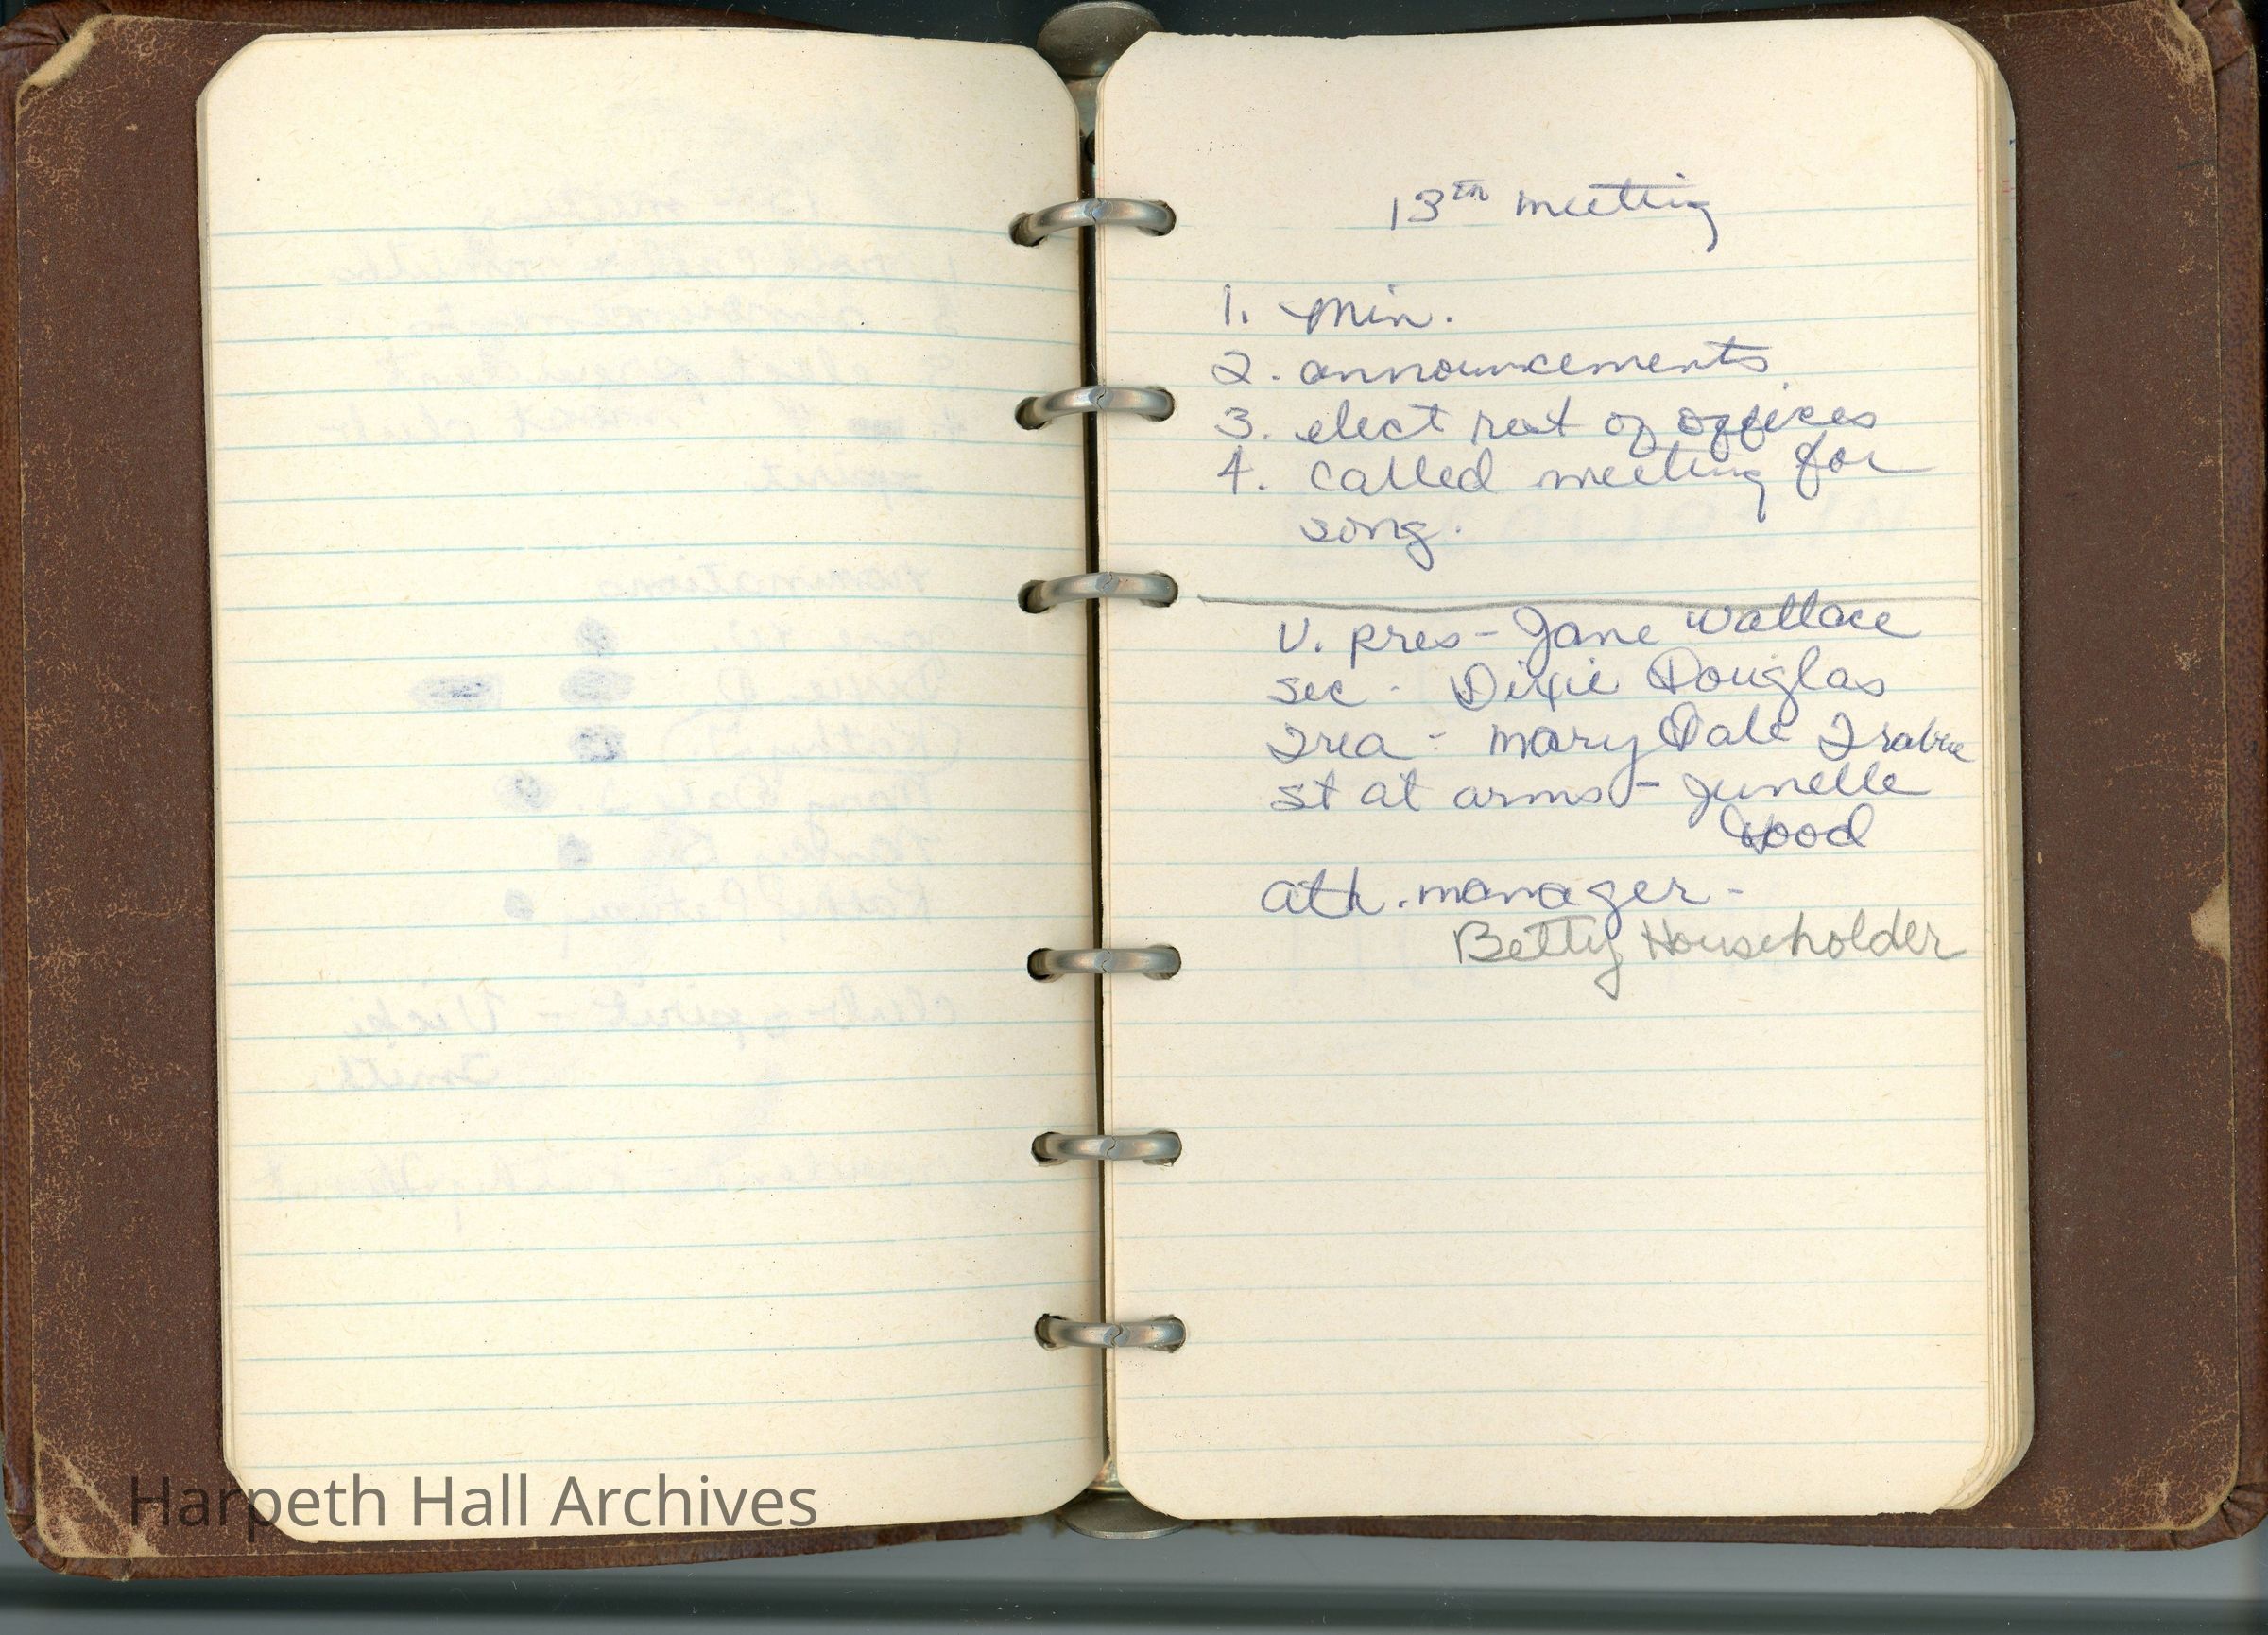 13th meeting
1. Min.
2. announcements
3. elect rest of offices
4. called meeting for
song.
V. pres - Jane Wallace
sec - Dixie Douglas
Trea - Mary Dale Trabue
st at arms - Junelle
Wood
ath. manager -
Betty Householder
Harpeth Hall Archives